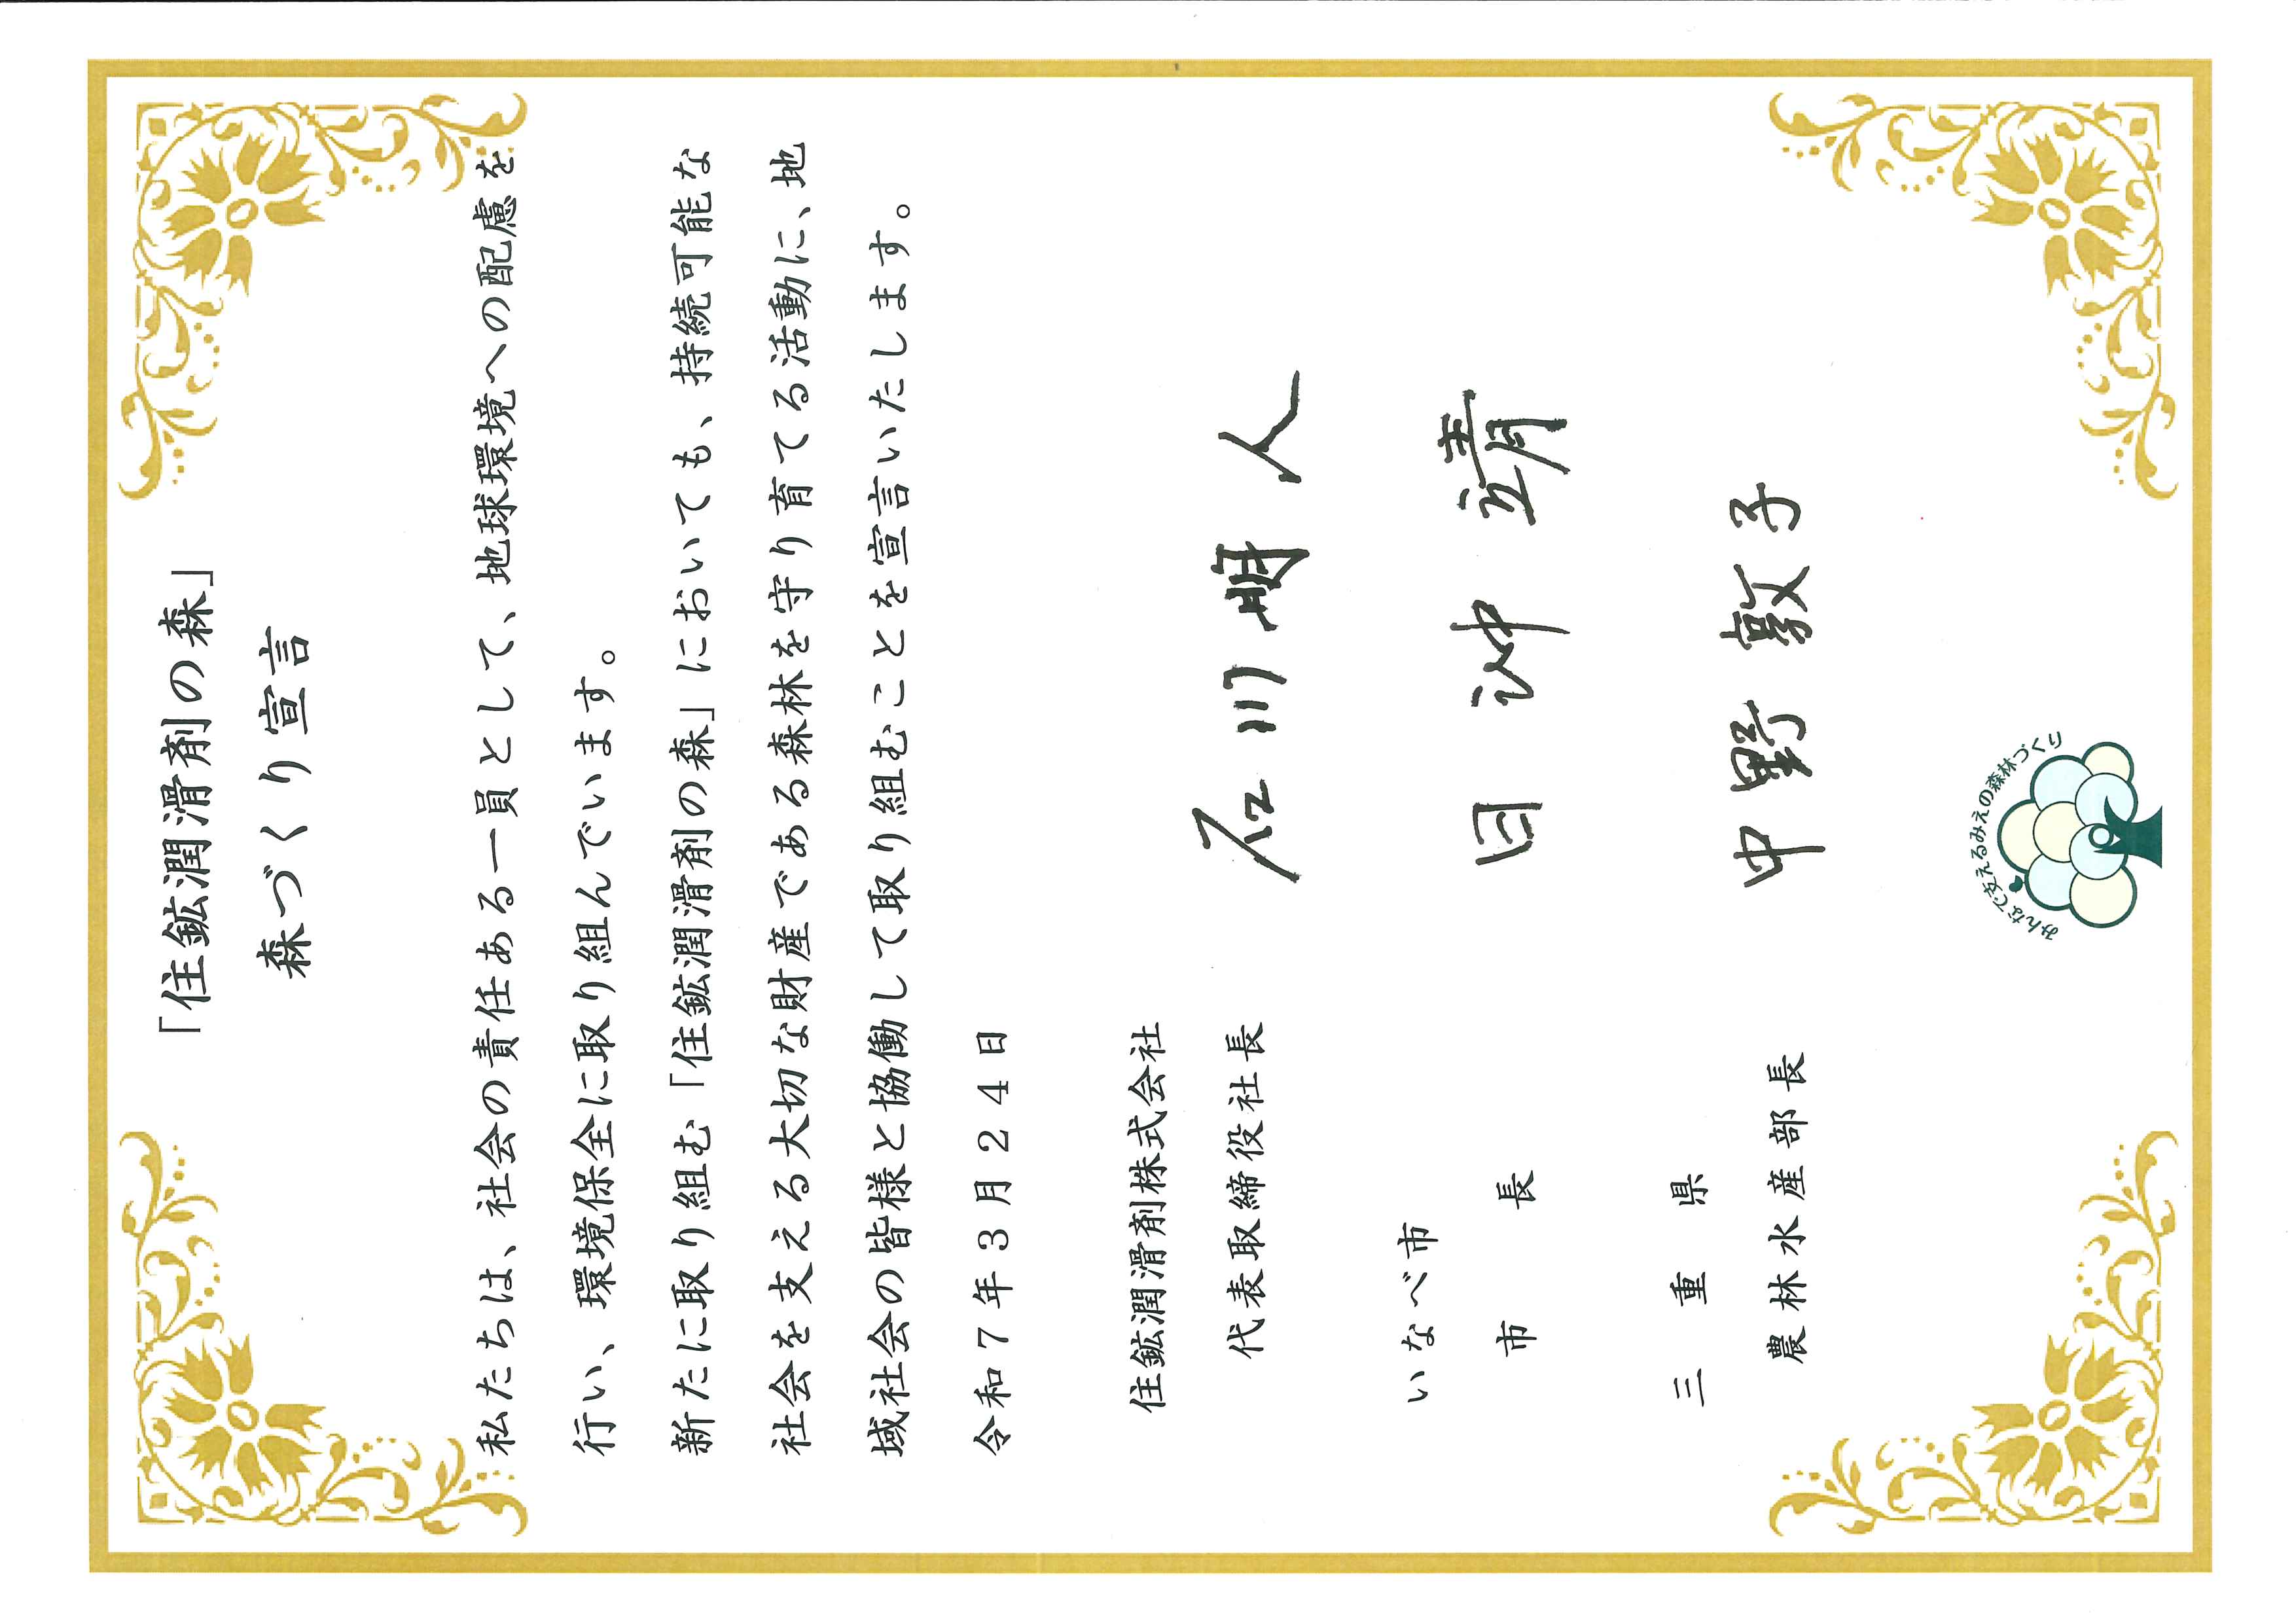 「住鉱潤滑剤の森」
森づくり宣言
私たちは、社会の責任ある一員として、地球環境への配慮を
行い、環境保全に取り組んでいます。
新たに取り組む「住鉱潤滑剤の森」においても、持続可能な
社会を支える大切な財産である森林を守り育てる活動に、地
域社会の皆様と協働して取り組むことを宣言いたします。
令和７年３月２４日
住鉱潤滑剤株式会社
代表取締役社長 石川明人
いなべ市
市長 日沖靖
三重県
農林水産部長 中野敦子
みんなで支えるみえの森林づくり